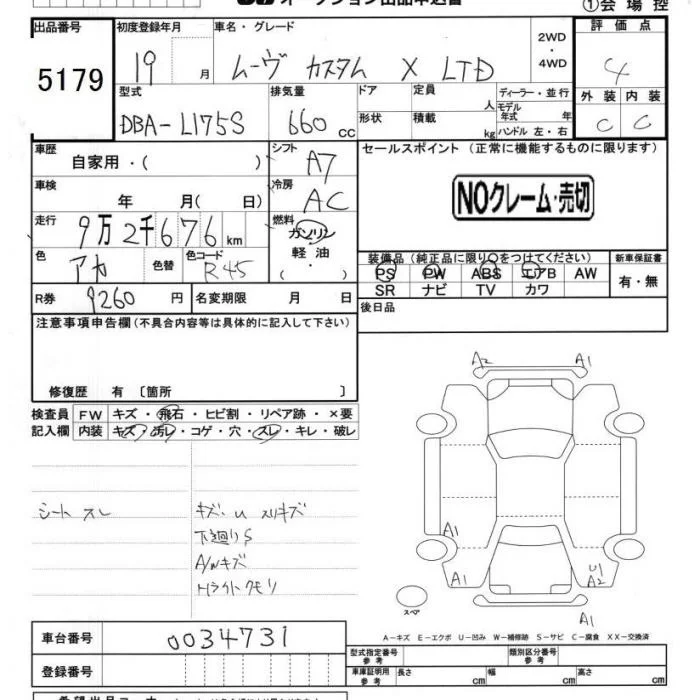 オークション出品申込書
①会場控
出品番号
5179
初度登録年月
19 月
車名・グレード
ムーヴ カスタム X LTD
2WD・4WD
評価点
4
外装 内装
C C
型式
DBA-L175S
排気量
660 cc
ドア
形状
定員 人
積載 kg
ディーラー・並行
モデル年式 年
ハンドル 左・右
車歴
自家用・( )
シフト
A7
車検
年 月( 日)
冷房
AC
走行
9万2千676 km
燃料
ガソリン
軽油
・( )
色
アカ
色替
色コード
R45
R券 9260 円
名変期限 月 日
セールスポイント (正常に機能するものに限ります)
NOクレーム・売切
装備品(純正品に限り○をつけてください)
PS PW ABS エアB AW
SR ナビ TV カワ
新車保証書
有・無
後日品
注意事項申告欄(不具合内容等は具体的に記入して下さい)
修復歴 有 〔箇所 〕
検査員記入欄
FW キズ・飛石・ヒビ割・リペア跡・×要
内装 キズ・汚レ・コゲ・穴・スレ・キレ・破レ
シート スレ
キズ・U スリキズ
下廻りS
A/Wキズ
Hライトクモリ
A2 A1
A1
A1
U1
A2
A1
スペア
A-キズ E-エクボ U-凹み W-補修跡 S-サビ C-腐食 XX-交換済
車台番号
0034731
登録番号
型式指定番号 参考
類別区分番号 参考
車庫証明用 参考
長さ cm 幅 cm 高さ cm